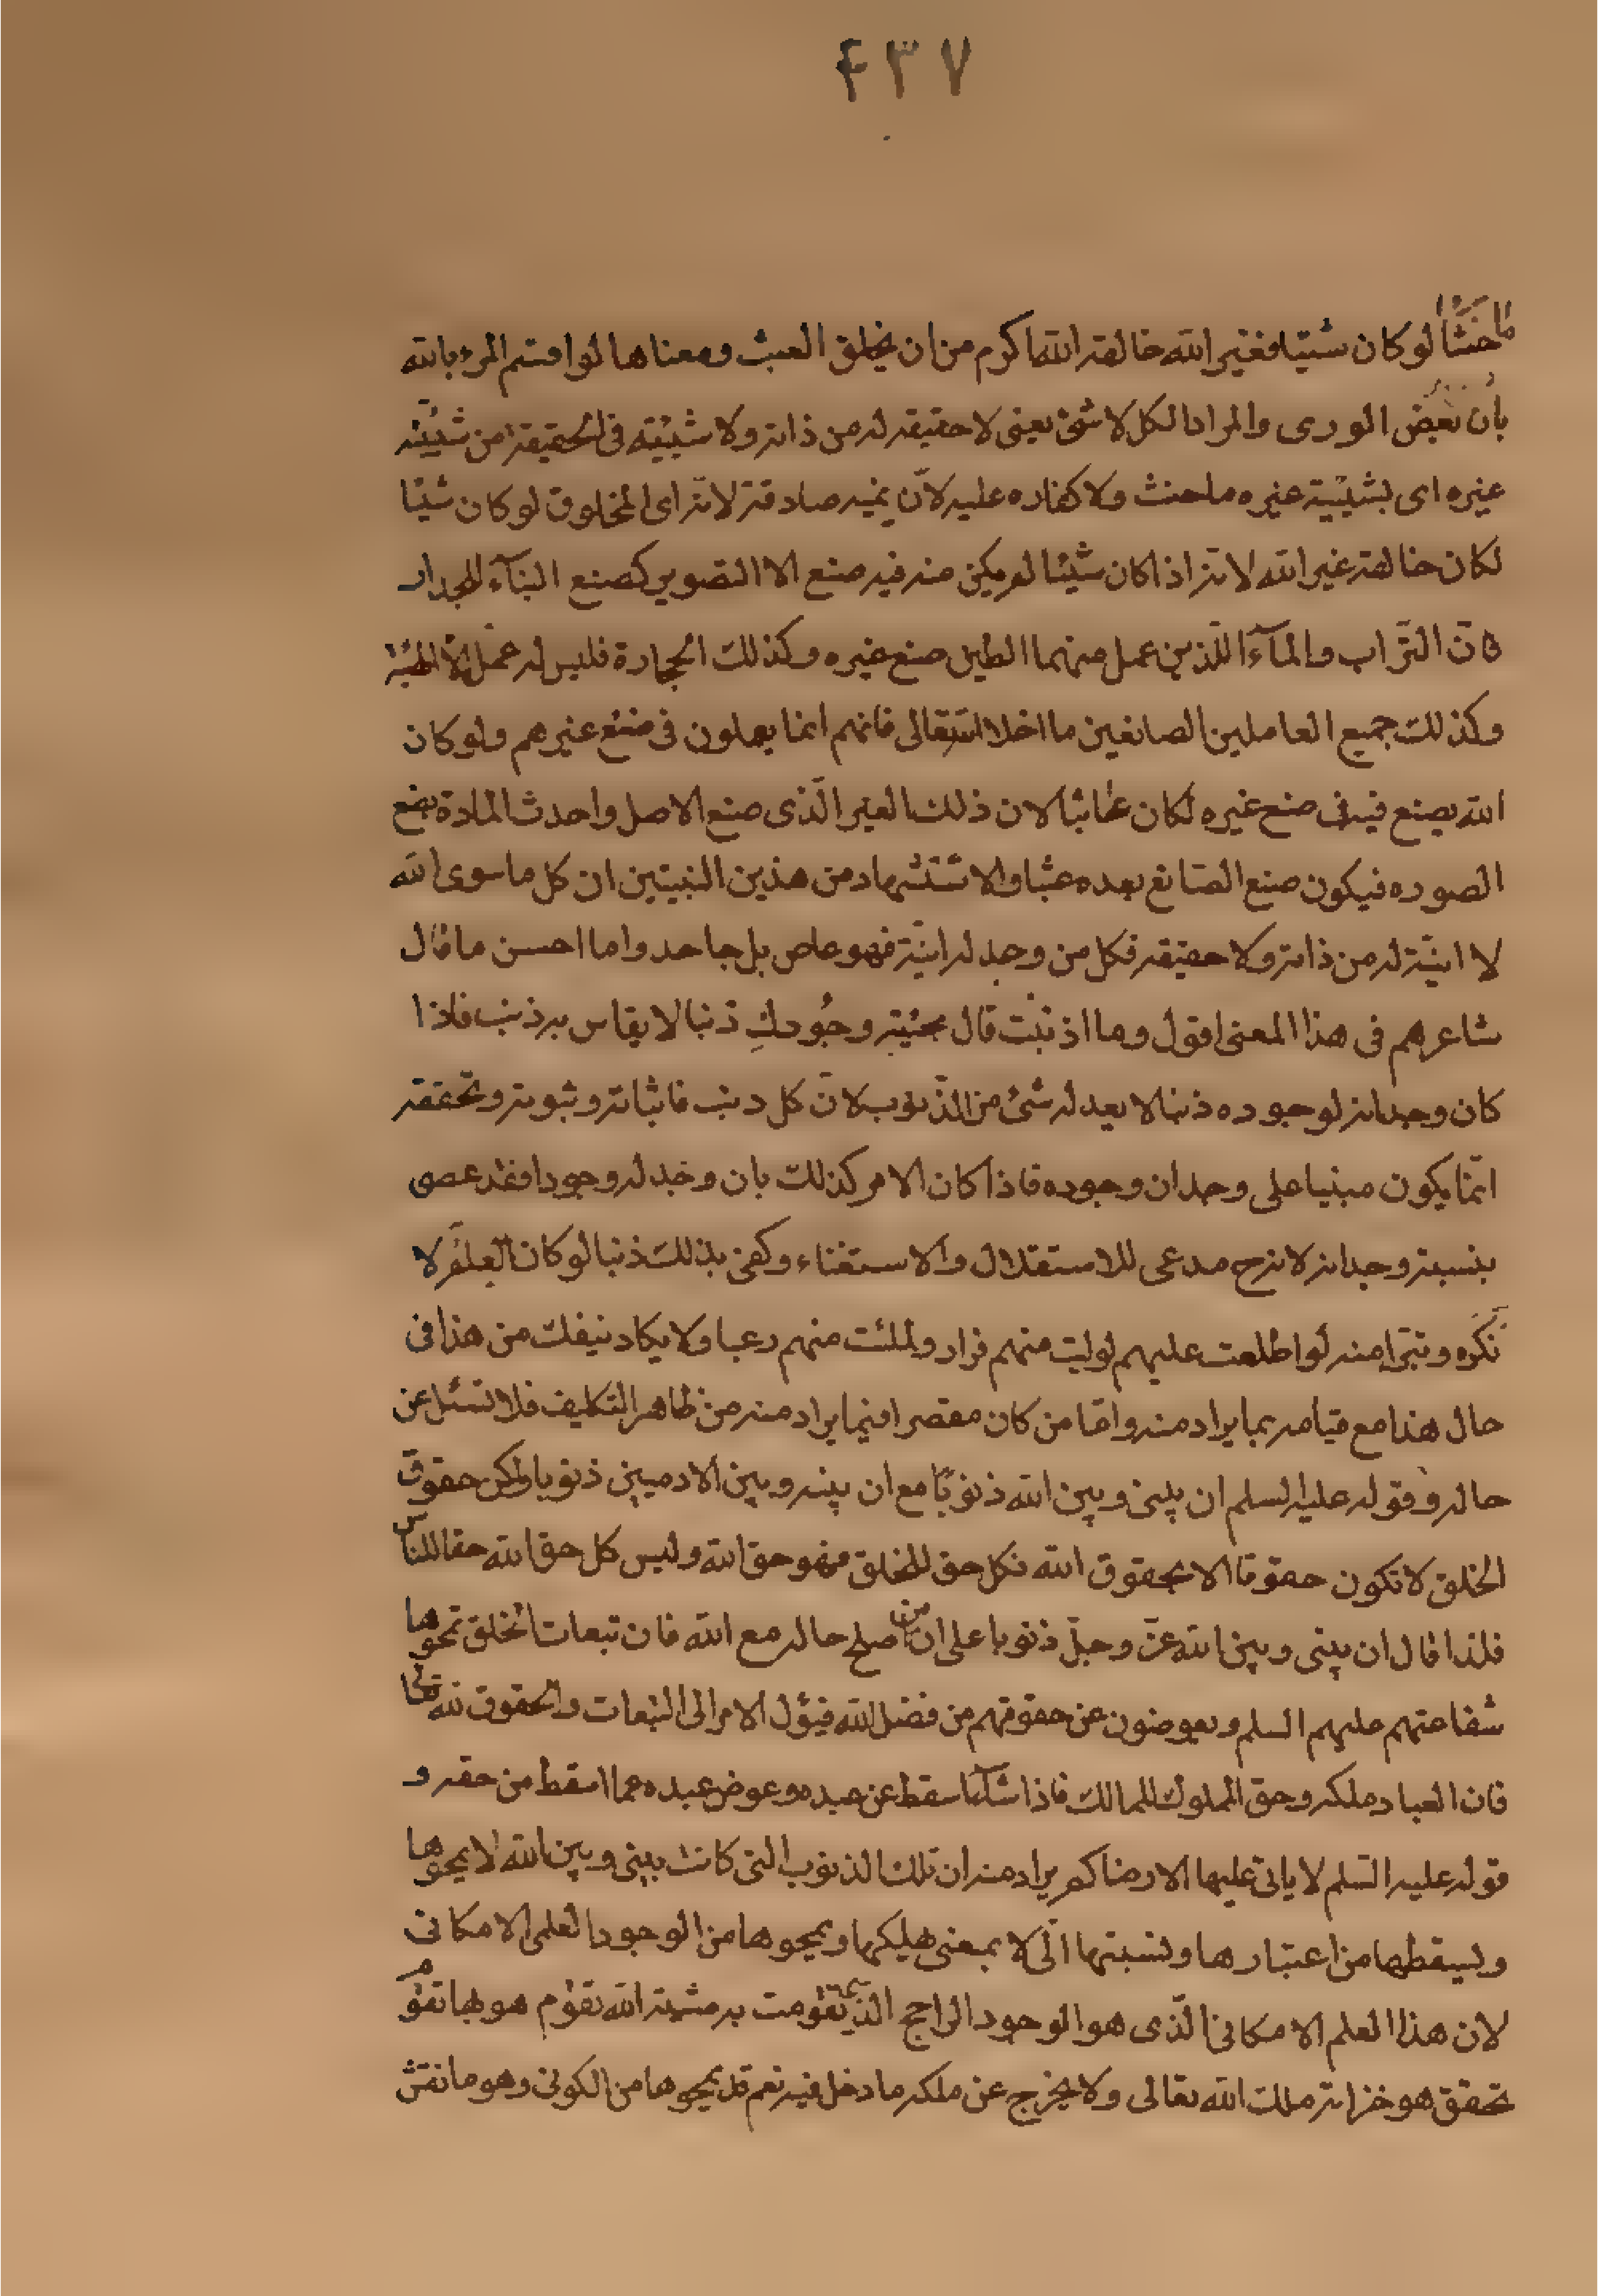 ۴۳۷
ما حنثا لو كان شيئا فغير الله خالقه الله اكرم من ان يخلق العبث ومعناها لو اقسم المرء بالله
بان بعض الورى والمراد الكل لا شئ يعنى لا حقيقة له من ذاته ولا شيئيته فى الحقيقة من شيئية
غيره اى بشيئية غيره ما حنث ولا كفاره عليه لانّ يمينه صادقة لانه اى المخلوق لو كان شيئا
لكان خالقه غير الله لانه اذا كان شيئا لم يكن منه فيه صنع الا التصوير كصنع البنآء للجدار
فانّ التّراب والمآء اللّذين عمل منهما الطين صنع غيره وكذلك الحجارة فليس له عمل الا الهيئة
وكذلك جميع العاملين الصانعين ما اخلا الله تعالى فانهم انما يعملون فى صنع غيرهم ولو كان
الله يصنع فيه فى صنع غيره لكان عابثا لان ذلك الغير الّذى صنع الاصل واحدث المادة يضع
الصوره فيكون صنع الصانع بعده عبثا والاستشهاد من هذين البيتين ان كل ما سوى الله
لا انيّة له من ذاته ولا حقيقة فكل من وجد له انيّة فهو عاص بل جاحد واما احسن ما قال
شاعرهم فى هذا المعنى اقول وما اذنبت قال مجيبة وجُودكِ ذنبا لا يقاس به ذنب فاذا
كان وجدانه لوجوده ذنبا لا يعدله شئ من الذّنوب لانّ كل ذنب فاثباته وثبوته وتحققه
انّما يكون مبنيا على وجدان وجوده فاذا كان الامر كذلك بان وجد له وجودا فقد عصى
بنسبة وجدانه لانه ح مدعى للاستقلال والاستغناء وكفى بذلك ذنبا لو كان العلم لا
نكره وتبرا منه لو اطلعت عليهم لوليت منهم فرار ولملئت منهم رعبا ولا يكاد ينفك من هذا فى
حال هذا مع قيامه بما يراد منه وامّا من كان مقصرا فيما يراد منه من ظاهر التكليف فلا تسئل عن
حاله وقوله عليه السلم ان بينى وبين الله ذنوبًا مع ان بينه وبين الادميين ذنوبا ولكن حقوق
الخلق لا تكون حقوقا الا بحقوق الله فكل حق للخلق فهو حق الله وليس كل حق الله حقا للناس
فلذا قال ان بينى وبين الله عزّ وجلّ ذنوبا على ان من صلح حاله مع الله فان تبعات الخلق تمحوها
شفاعتهم عليهم السلم ويعوضون عن حقوقهم من فضل الله فيؤل الامر الى التبعات والحقوق لله تعالى
فان العباد ملكه وحق المملوك للمالك فاذا شآء اسقط عن عبده وعوض عبده عما اسقط من حقه و
قوله عليه السّلم لا ياتى عليها الا رضاكم يراد منه ان تلك الذنوب التى كانت بينى وبين الله لا يمحوها
ويسقطها من اعتبارها ونسبتها الّى لا بمعنى هليكها ويمحوها من الوجود العلمى الامكانى
لان هذا العلم الامكانى الّذى هو الوجود الراجح الذى تقومت به مشية الله تقوم هو بها تقوم
تحقق هو خزانة ملك الله تعالى ولا يخرج عن ملكه ما دخل فيه نعم قد يمحوها من الكونى وهو ما نقش